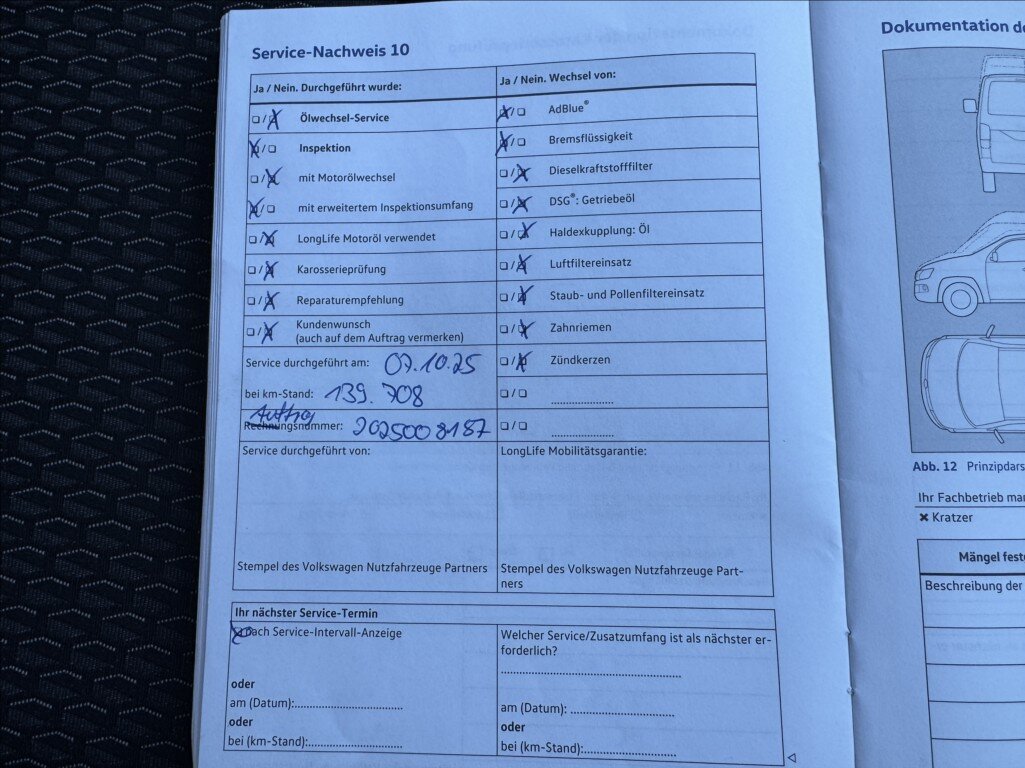 Service-Nachweis 10
Ja / Nein. Durchgeführt wurde:
❏ / ☒ Ölwechsel-Service
☒ / ❏ Inspektion
❏ / ☒ mit Motorölwechsel
☒ / ❏ mit erweitertem Inspektionsumfang
❏ / ☒ LongLife Motoröl verwendet
❏ / ☒ Karosserieprüfung
❏ / ☒ Reparaturempfehlung
❏ / ☒ Kundenwunsch
(auch auf dem Auftrag vermerken)
Service durchgeführt am: 07.10.25
bei km-Stand: 139.708
Auftrag
Rechnungsnummer: 2025008187
Service durchgeführt von:
Stempel des Volkswagen Nutzfahrzeuge Partners
Ja / Nein. Wechsel von:
☒ / ❏ AdBlue®
☒ / ❏ Bremsflüssigkeit
❏ / ☒ Dieselkraftstofffilter
❏ / ☒ DSG®: Getriebeöl
❏ / ☒ Haldexkupplung: Öl
❏ / ☒ Luftfiltereinsatz
❏ / ☒ Staub- und Pollenfiltereinsatz
❏ / ☒ Zahnriemen
❏ / ☒ Zündkerzen
❏ / ❏ ....................
❏ / ❏ ....................
LongLife Mobilitätsgarantie:
Stempel des Volkswagen Nutzfahrzeuge Part-
ners
Ihr nächster Service-Termin
☒ nach Service-Intervall-Anzeige
oder
am (Datum):..............................
oder
bei (km-Stand):..............................
Welcher Service/Zusatzumfang ist als nächster er-
forderlich?
..................................................
am (Datum): ..............................
oder
bei (km-Stand):..............................
Dokumentation de
Abb. 12 Prinzipdars
Ihr Fachbetrieb mar
✖ Kratzer
Mängel fest
Beschreibung der